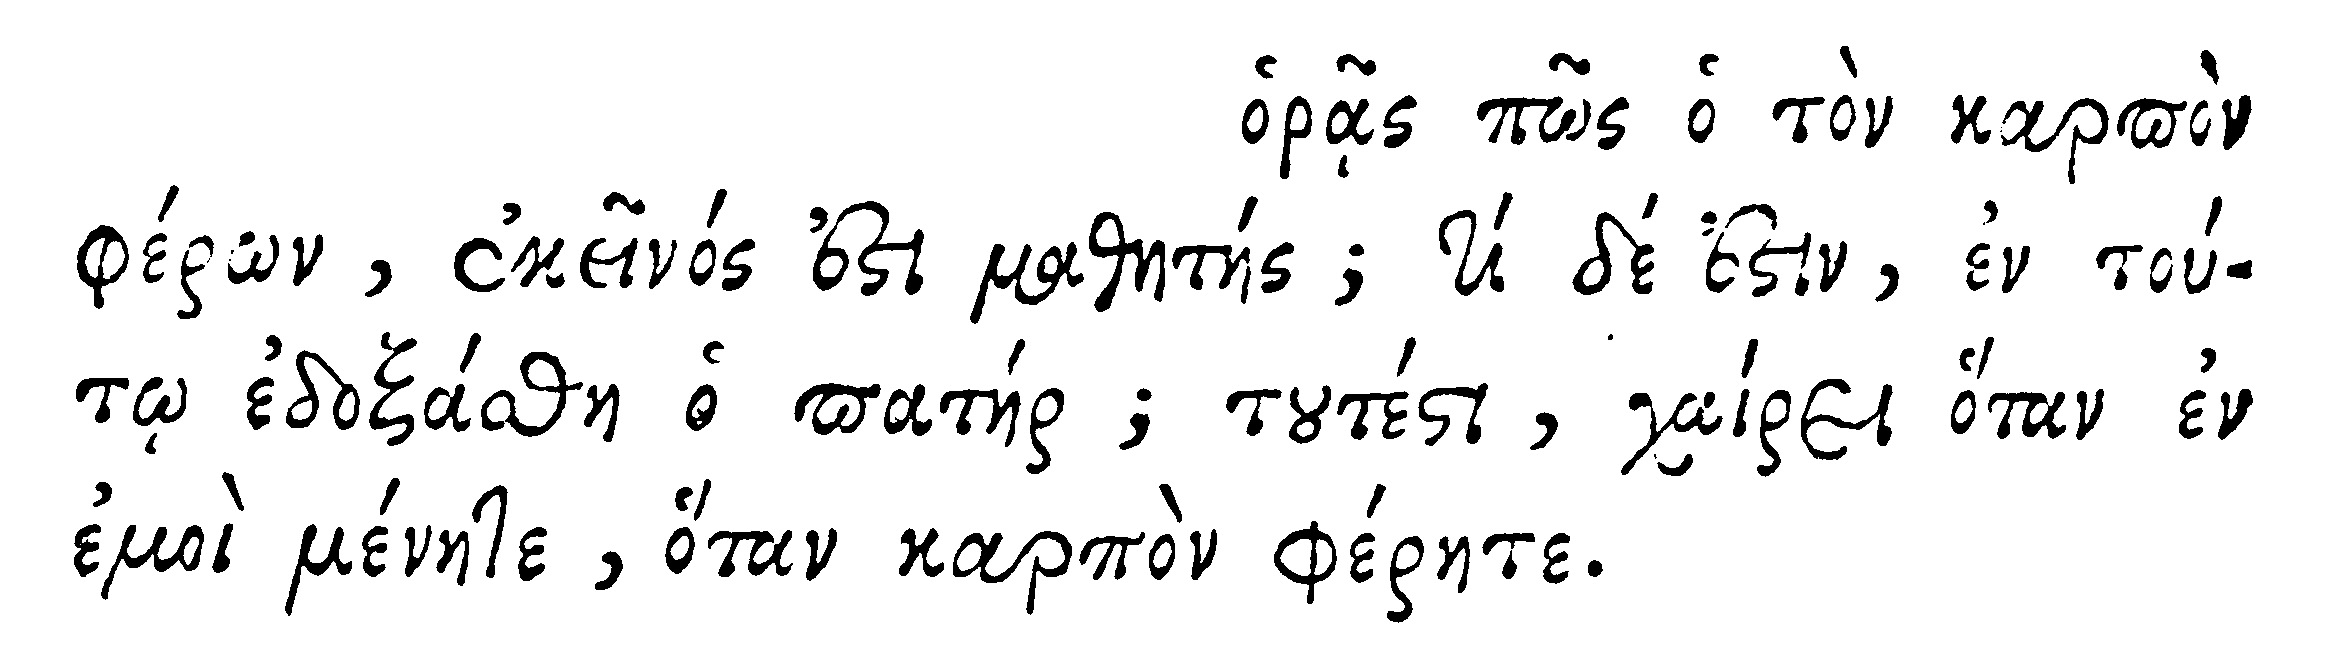 ὁρᾷς πῶς ὁ τὸν καρπὸν
φέρων, ἐκεῖνός ἐστι μαθητής; τί δέ ἐστιν, ἐν τού-
τῳ ἐδοξάσθη ὁ πατήρ; τουτέστι, χαίρει ὅταν ἐν
ἐμοὶ μένητε, ὅταν καρπὸν φέρητε.